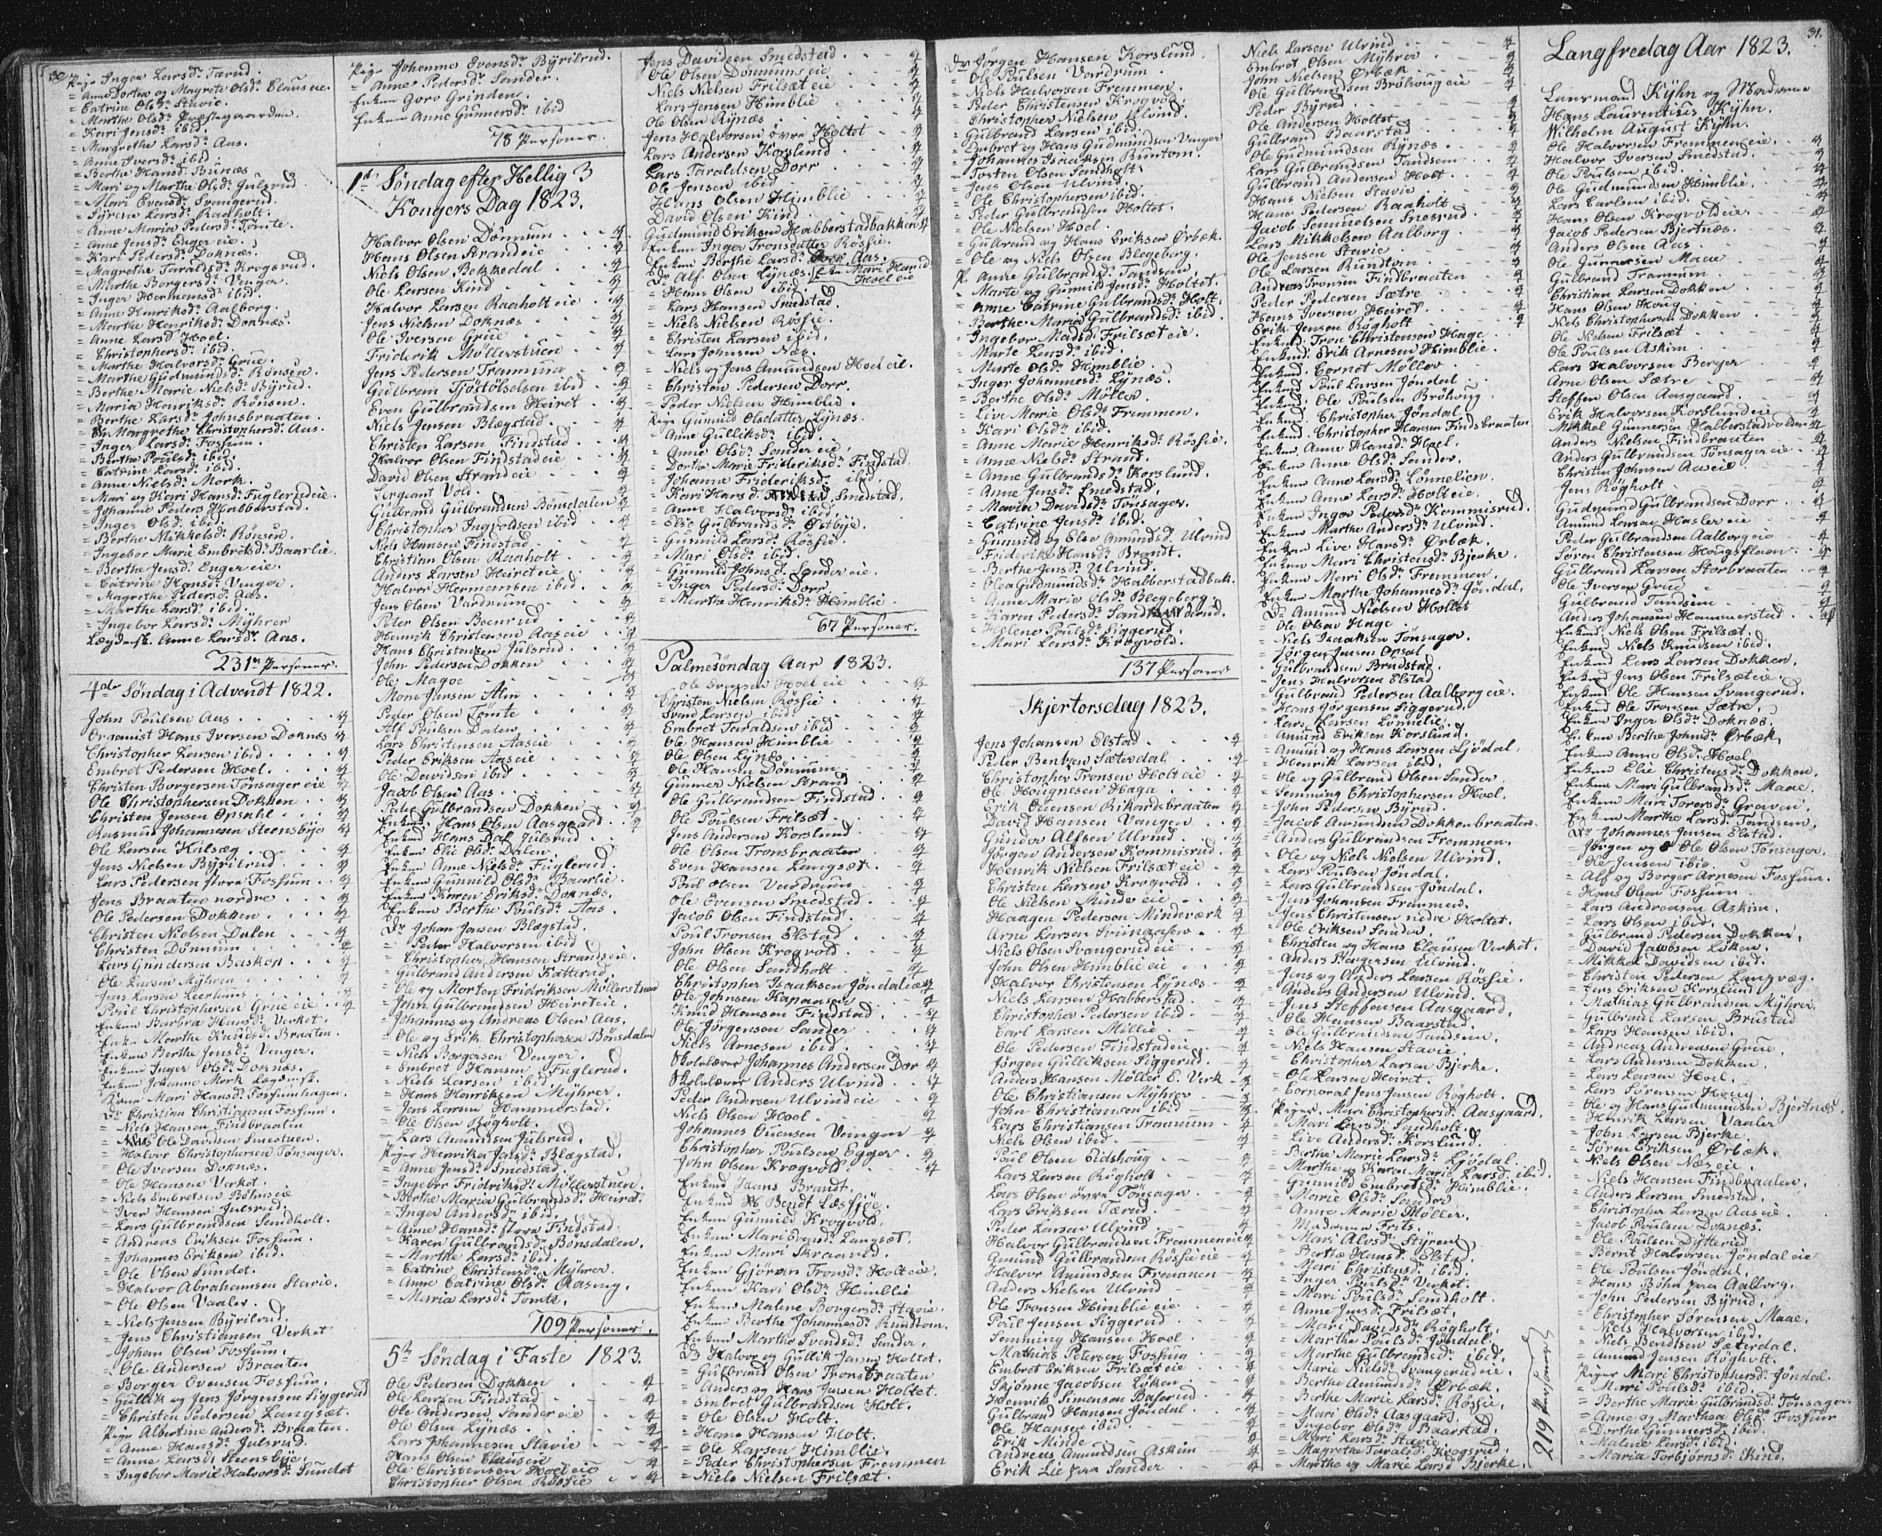 30.
Pige Inger Larsd: Tærud.
= Anne Dortea og Magrete Olsd: Clauseie.
= Catrine Olsd: Stavie.
= Marthe Olsd: Præstegaarden.
= Kari Jensd: ibid.
= Margrethe Larsd: Aas.
= Anne Iversd: ibid.
= Berthe Hansd: Bunæs.
= Mari og Marthe Olsd: Julsrud.
= Mari Evensd: Svangerud.
= Sÿrene Larsd: Raaholt.
= Anne Maria Pedersd: Tømte.
= Anne Jensd: Engereie.
= Kari Pedersd: Doknæs.
= Magrethe Taraldsd: Krogsrud.
= Marthe Borgersd: Venger.
= Inger Hermansd: ibid.
= Anne Henriksd: Aalborg.
= Marthe Henriksd: Doknæs.
= Anne Larsd: Hoel.
= Christophersd: ibid.
= Marthe Halvorsd: Grue.
= Marthe Gudmundsd: Rønsen.
= Berthe Marie Nielsd: Bÿrud.
= Maria Henriksd: Rønsen.
= Berthe Larsd: Johnsbraaten.
= Margrethe Christophersd: Aas.
= Inger Larsd: Fossum.
= Berthe Poulsd: ibid.
= Catrine Larsd: ibid.
= Anne Nielsd: Mork.
= Mari og Kari Hansd: Fuglerudeie.
= Johanne Peders Halberstad.
= Inger Olsd: ibid.
= Berthe Mikkelsd: Rønsen.
= Ingebor Marie Embretsd: Baarlie.
= Berthe Jensd: Engereie.
= Catrine Hansd: Venger.
= Magrethe Pedersd: Aas.
= Marthe Larsd: ibid.
= Ingebor Larsd: Mÿhrer
Lægdensk. Anne Larsd: Aas.
231 Personer.
4de Søndag i Advendt 1822.
John Poulsen Aas . . . . 4
Organist Hans Iversen Doknes 4
Christopher Larsen ibid . . 4
Embret Pedersen Hoel . . 4
Christen Borgersen Tønsagereie 4
Ole Christophersen Dokken . . 4
Christen Jensen Opsahl . . 4
Rasmus Johannesen Steensbÿe 4
Ole Larsen Hilsæg . . 4
Jens Nielsen Bÿrilrud . . 4
Lars Pedersen store Fossum . . 4
Jens Braaten nordre . . 4
Ole Pedersen Dokken . . 4
Christen Nielsen Dalen . . 4
Christen Dønnum . . 4
Lars Gundersen Baskop . . 4
Ole Larsen Mÿhren . . 4
Jens Larsen Leerhuus . . 4
Poul Christophersen Grueeie . . 4
Enken Barbra Hansd: Verket.
Enken Marthe Knudsd: Braaten.
Enken Berthe Jensd: Venger.
Enken Inger Olsd: Doknæs.
Enken Johanne Mork Lægdensk.
Kona Mari Hansd: Fossumhagen.
Dr Christian Christiansen Fossum.
= Niels Hansen Findbraaten
= Ole Davidsen Smestuen.
= Halvor Christophersen Tønsager.
= Ole Iversen Doknæs.
= Ole Hansen Verket.
= Niels Embretsen Bøhnseie
= Iver Hansen Julsrud.
= Lars Gulbrandsen Sandholt.
= Andreas Eriksen Fossum.
= Johannes Eriksen ibid.
= Ole Olsen Sundet.
= Halvor Abrahamsen Stavie.
= Ole Olsen Vaaler.
= Niels Jensen Bÿrilrud.
= Jens Christiansen Verket
= Johan Olsen Fossum.
= Ole Andersen Braaten
= Borger Evensen Fossum.
= Gullik og Jens Jørgensen Siggerud
= Christen Pedersen Langsæt.
Pige Albertine Andersd: Braaten.
= Anne Hansd: Julsrud.
= Anne Larsd: Steensbÿe.
= Ingebor Marie Halvorsd: Sundet
Pige Johanne Evensd: Bÿrilrud.
= Anne Pedersd: Sander.
Enken Goro Grinden.
Enken Anne Gunnersd: ibid
78 Personer.
1ste Søndag efter Hellig 3
Kongers Dag 1823.
Halvor Olsen Dønnum . . 4
Hans Olsen Strandeie . . 4
Niels Olsen Bekkedal . . 4
Ole Larsen Kind . . 4
Halvor Larsen Raaholteie . . 4
Jens Nielsen Doknæs . . 4
Ole Iversen Grue . . 4
Friderik Møllerstuen . . 4
Jens Pedersen Trammum . . 4
Gulbran Tjøstølselsen ibid . . 4
Even Gulbrandsen Heiret . . 4
Niels Jensen Blægstad . . 4
Christen Larsen Findstad . . 4
Halvor Olsen Findstadeie . . 4
David Olsen Strandeie . . 4
Sergeant Vold . . 4
Gulbrand Gulbrandsen Bønsdalen 4
Christopher Ingvoldsen ibid . . 4
Niels Hansen Findstad . . 4
Christian Olsen Raaholt . . 4
Anders Larsen Heireteie . . 4
Halvor Hermansen ibid . . 4
Jens Olsen Vardrum . . 4
Peter Olsen Boenrud . . 4
Henrik Christensen Aaseie . . 4
Hans Christensen Julsrud . . 4
John Pedersen Dokken . . 4
Ole Magoe . . 4
Mons Jansen Alm . . 4
Peder Olsen Tømte . . 4
Alf Poulsen Dalen . . 4
Lars Christensen Aaseie . . 4
Peder Eriksen Aaseie . . 4
Ole Davidsen ibid . . 4
Jacob Olsen Aas . . 4
Peder Gulbrandsen Dokken . . 4
Enkem Hans Olsen Aasgaard . . 4
Enkem Hans Dal Julsrud . . 4
Enken Elie Olsd: Dalen.
Enken Anne Nielsd: Fuglerud.
Enken Gunnild Olsd: Baarlie.
Enken Karen Eriksd: Doknæs.
Enken Berthe Poulsd: Aas.
Dr Johan Jansen Blægstad.
= Peder Halvorsen ibid
= Christopher Hansen Strandseie.
= Gulbrand Andersen Katterud.
= Ole og Morten Fridriksen Müllerstuen
= John Gulbrandsen Heireteie.
= Johannes og Andreas Olsen Aas.
= Ole og Erik Christophersen Bønsdalen
= Niels Borgersen Venger.
= Embret Hansen Fuglerud.
= Niels Larsen ibid
= Hans Henriksen Mÿhrer.
= Jens Larsen Hammerstad.
= Ole Olsen Røgholt.
= Lars Amundsen Julsrud.
Piger Henrika Jansd: Blægstad.
= Anne Jensd: Smedstad.
= Ingebor Fridriksd: Møllerstuen.
= Berthe Maria Gulbrandsd: Heiret.
= Inger Andersd: ibid.
= Anne Hansd: store Findstad.
= Karen Gulbrandsd: Bønsdalen.
= Marthe Larsd: ibid.
= Catrine Christensd: Mÿhrer.
= Anne Catrine Olsd: Aasing.
= Maria Larsd: Tømte.
109 Personer.
5te Søndag i Faste 1823.
Ole Pedersen Dokken . . 4
Ole Larsen Findstad . . 4
Ole Andersen Sandereie . . 4
Ole Olsen Lÿnds . . 4
Lars Johannesen Stavie . . 4
Hans Olsen Clausen . . 4
Ole Christensen Hoeleie . . 4
Christopher Olsen Røssie . . 4
Jens Davidsen Smedstad . . 4
Ole Olsen Dønnumeie . . 4
Niels Nielsen Frilsæteie . . 4
Lars Jensen Himblie . . 4
Ole Olsen Rÿnæs . . 4
Jens Halvorsen øvre Holtet . . 4
Lars Andersen Korslund . . 4
Lars Taraldsen Dorr . . 4
Ole Jensen ibid . . 4
Hans Olsen Himblie . . 4
David Olsen Kind . . 4
Gudmund Eriksen Habberstadbakken 4
Enken Inger Tronsdatter Røssie.
Enken Berthe Larsd: Aas.
Dr Alf Olsen Lÿnæs. Enke Mari Hansd Hoeleie
= Hans Olsen ibid.
= Lars Hansen Smedstad.
= Niels Nielsen Røssie.
= Christen Larsen ibid.
= Lars Johnsen Næs.
= Niels og Jens Amundsen Hoeleie.
= Christen Pedersen Dorr.
= Peder Nielsen Himblie.
Pige Gunnild Olsdatter Lÿnæs.
= Anne Gulliksd: ibid.
= Anne Olsd: Sandereie
= Dorte Marie Frideriksd: Findstad.
= Johanne Frideriksd: ibid.
= Kari Hansd: Smedstad.
= Anne Halvorsd: ibid.
= Else Gulbrandsd: Østbÿe.
= Gunnild Larsd: Røssie
= Mari Olsd: ibid.
= Gunnild Johnsd: Sandereie.
= Inger Pedersd: Dorr
= Marthe Henriksd: Himblie
67 Personer.
Palmesøndag Aar 1823.
Ole Evensen Hoeleie . . 4
Christen Nielsen Røssie . . 4
Svend Larsen ibid . . 4
Embret Taraldsen ibid . . 4
Ole Hansen Himblie . . 4
Ole Olsen Lÿnæs . . 4
Ole Hansen Dønnum . . 4
Gunner Nielsen Strand . . 4
Ole Gulbrandsen Findstad . . 4
Ole Poulsen Frilsæt . . 4
Jens Andersen Korslund . . 4
Ole Olsen Tronsbraaten . . 4
Even Hansen Langsæt . . 4
Poul Olsen Vardrum . . 4
Ole Evensen Smedstad . . 4
Jacob Olsen Findstad . . 4
Poul Tronsen Elstad . . 4
John Olsen Krogvold . . 4
Ole Olsen Sandholt . . 4
Christopher Isaaksen Jøndaleie 4
Ole Johnsen Kapanger . . 4
Knud Hansen Findstad . . 4
Ole Jørgensen Sander . . 4
Niels Arnesen ibid . . 4
Skolelærer Johannes Andersen Dor 4
Skolelærer Anders Ulvind . . 4
Peder Andersen Ulvindeie . . 4
Niels Olsen Hoel . . 4
Johannes Ouensen Vangen . . 4
Christopher Poulsen Egger . . 4
John Olsen Krogvold . . 4
Enkem Hans Brandt.
Enkem Bendt Læssøe.
Enken Gunnild Krogvold.
Enken Mari Evensd: Langsæt.
Enken Mari Skraaned.
Enken Gjøran Tronsd: Holteie.
Enken Kari Olsd: Himblie
Enken Malene Borgersd: Stavie.
Enken Berthe Johannesd: Rundtom.
Enken Marthe Svendsd: Sander.
Dr Halvor og Gullik Jensen Holtet.
= Gulbrand Olsen Tronsbraaten
= Anders og Hans Jensen Holtet.
= Embret Gulbrandsen Holt.
= Ole Olsen Holt.
= Hans Hansen Holt.
= Ole Larsen Himblie.
= Peder Christophersen Fremmen
= Niels Nielsen Frilsæt.
Dr Jørgen Hansen Korslund
= Ole Poulsen Vardrum.
= Niels Halvorsen Fremmen.
= Peder Christensen Krogvold.
= Christopher Nielsen Ulvind.
= Gulbrand Larsen ibid.
= Embret og Hans Gudmundsen Venger
= Johannes Isaaksen Rundtom.
= Tosten Olsen Sandholt.
= Jens Olsen Ulvind.
= Ole Christophersen ibid.
= Peder Gulbrandsen Holtet.
= Ole Nielsen Hoel.
= Gulbrand og Hans Eriksen Ørbæk.
= Ole og Niels Olsen Blegeberg.
P. Anne Gulbrandsd: Tandsen
= Marte og Gunnild Jensd: Holtet.
= Anne Catrine Gulbrandsd: Holt.
= Berthe Maria Gulbrandsd: ibid.
= Ingebor Madsd: Frilsæteie.
= Marte Larsd: ibid.
= Marte Olsd: Himblie.
= Inger Johannesd: Lÿnæs.
= Berthe Olsd: Møller.
= Live Marie Olsd: Fremmen.
= Kari Olsd: ibid.
= Anne Marie Henriksd: Røssie.
= Anne Nielsd: Strand.
= Anne Gulbrandsd: Korslund.
= Anne Jensd: Smedstad.
= Maria Davidsd: Tønsager.
= Catrine Jensd: ibid.
= Gunnild og Else Amundsd: Ulvind
= Frideriks Hansd: Brandt.
= Berthe Jensd: Ulvind.
= Olea Gudmundsd: Halberstadbak.
= Anne Marie Olsd: Blegeberg.
= Karen Pedersd: Sand
= Helene Poulsd: Siggerud.
= Mari Larsd: Krogvold.
137 Personer.
Skjertorsdag 1823.
Jens Johansen Elstad . . 4
Peder Bentsen Sæterdal . . 4
Christopher Tronsen Holteie . . 4
Ole Hougnesen Haga . . 4
Erik Ouensen Rikardsbraaten 4
David Hansen Vangen . . 4
Gunder Alfsen Ulvind . . 4
Jørgen Andersen Kommisrud . . 4
Henrik Nielsen Frilsæteie . . 4
Christen Larsen Krogvold . . 4
Ole Nielsen Mindeeie . . 4
Haagen Pederson Mindeværk 4
Arne Larsen Svingaasen . . 4
Niels Olsen Svangerudeie . . 4
John Olsen Himblieeie . . 4
Halvor Christensen Lÿnæs . . 4
Niels Larsen Habberstad . . 4
Christopher Pedersen ibid . . 4
Carl Larsen Millie . . 4
Ole Pedersen Findstadeie . . 4
Jørgen Gulliksen Siggerud . . 4
Anders Hansen Møller E. Verk 4
Ole Christiansen Mÿhrer . . 4
John Christiansen ibid . . 4
Lars Christiansen Trammum . . 4
Niels Olsen ibid . . 4
Poul Olsen Eidshoug . . 4
Lars Larsen Røgholt . . 4
Lars Olsen øvre Tønsager . . 4
Lars Eriksen Tærud . . 4
Peder Larsen Ulvind . . 4
Halvor Gulbrandsen Fremmeneie 4
Amund Gulbrandsen Røssieeie . . 4
Halvor Amundsen Fremmen . . 4
Anders Nielsen Ulvind . . 4
Ole Tronsen Himblieeie . . 4
Poul Jensen Siggerud . . 4
Semming Hansen Hoel . . 4
Mathias Petersen Fossum . . 4
Embret Eriksen Frilsæteie . . 4
Skjønne Jacobsen Leken . . 4
Henrik Simensen Baserud . . 4
Gulbrand Hansen Jøndal . . 4
Ole Hansen ibid . . 4
Erik Minde . . 4
Andreas Amundsen Askim . . 4
Erik Lie fra Sander . . 4
Niels Larsen Ulvind . . 4
Embret Olsen Mÿhrer . . 4
John Nielsen Ørbæk . . 4
Ole Gulbrandsen Brøhougeie . . 4
Peder Bÿrud . . 4
Ole Andersen Holtet . . 4
Gulbran Baarstad . . 4
Ole Gudmundsen Rÿnæs . . 4
Lars Gulbrandsen Tandsem . . 4
Gulbrand Andersen Holt . . 4
Hans Nielsen Stavie . . 4
Hans Pedersen Raaholt . . 4
Jacob Semmelsen Smesrud . . 4
Lars Mikkelsen Aalborg . . 4
Ole Jensen Stavie . . 4
Ole Larsen Rundtom . . 4
Andreas Tronsen Findbraaten . . 4
Peder Pedersen Sætre . . 4
Hans Iversen Heiret . . 4
Erik Jensen Røgholt . . 4
Enkem: Tron Christensen Hage.
Enkem: Erik Arnesen Himblie.
Enkem: Cornet Møller.
Enkem: Poul Larsen Jøndal.
Enkem: Ole Poulsen Brøhoug.
Enkem: Christopher Jøndal.
Enkem: Christopher Hansen Findsbraaten
Enken Anne Hansd: Hoel.
Enken Anne Olsd: Sander.
Enken Anne Larsd: Lønnelien.
Enken Anne Larsd: Holteie.
Enken Inger Pedersd: Kommisrud.
Enken Marthe Andersd: Ulvind.
Enken Live Hansd: Ørbæk.
Enken Mari Christensd: Bjerke.
Enken Mari Olsd: Fremmen.
Enken Marthe Johannesd: Jøndal.
Dr Amund Nielsen Holtet
= Ole Olsen Hage.
= Niels Isaaksen Tønsager.
= Jørgen Jensen Opsal.
= Gulbrandsen Brudstad.
= Jens Halvorsen Elstad
= Gulbrand Pedersen Aalborgeie.
= Hans Jørgensen Siggerud.
= Lars Larsen Lønnelie.
= Amund Eriksen Korslund.
= Amund og Hans Larsen Ljødal.
= Henrik Larsen ibid.
= Ole og Gulbrand Olsen Sander
= Semming Christophersen Hoel.
= John Pedersen Bÿrud.
= Jacob Amundsen Dokkenbraaten.
= Anders Gulbrandsen Fremmen.
= Ole og Niels Nielsen Ulvind.
= Lars Poulsen Jøndal.
= Lars Gulbrandsen Jøndal.
= Jens Johansen Fremmen.
= Jens Christensen nedre Holtet.
= Ole Eriksen Sander.
= Christen og Hans Clausen Verket.
= Anders Borgersen Ulvind.
= Jens og Anders Larsen Røssie.
= Anders Andersen Ulvind.
= Jens Steffensen Aasgaard.
= Ole Hansen Baarstad.
= Ole Gulbrandsen Tandsem.
= Niels Hansen Stavie.
= Christopher Larsen Bjerke.
= Ole Larsen Heiret.
= Corneval Jens Jansen Røgholt.
Piger Mari Christophersd: Aasgaard.
= Mari Larsd: Sandholt.
= Live Andersd: Korslund.
= Berthe Marie Larsd: Ljødal.
= Marthe og Karen Mari Larsd: ibid.
= Gunnild Embretsd: Himblie.
= Marie Olsd: Sander
= Anne Marie Møller.
= Madamen Frits.
= Mari Alvsd: Stÿren
= Berthe Hansd: Elstad
= Mari Christensd: ibid.
= Inger Poulsd: Verket.
= Mari Poulsd: Sandholt.
= Anne Jensd: Frilsæt.
= Mari Davidsd: Røgholt.
= Marthe Poulsd: Jøndal.
= Marthe Gulbrandsd: ibid.
= Marie Nielsd: Svangerudeie.
= Berthe Amundsd: Ørbæk.
= Berthe Marie Larsd: Røssie.
= Mari Olsd: Aasgaard.
= Ingebor Olsd: Baarstad.
= Mari Larsd: Stavie.
= Magrethe Taralsd: Krogsrud.
= Marthe og Marie Larsd: Bjerke.
219 Personer
31.
Langfredag Aar 1823.
Lensmand Kÿhn og Madamme
Hans Laurentius Kÿhn.
Wilhelm August Kÿhn.
Ole Halvorsen Fremmeneie . . 4
Halvor Iversen Smedstad . . 4
Ole Poulsen ibid . . 4
Ole Gudmundsen Himblie . . 4
Lars Carlsen ibid . . 4
Hans Olsen Krogvoldeie . . 4
Jacob Pedersen Bjertnæs . . 4
Anders Olsen Aas . . 4
Ole Gunnersen Maeu . . 4
Gulbrand Trammum . . 4
Christian Larsen Dokken . . 4
Hans Olsen Houg . . 4
Niels Christophersen Dokken . . 4
Ole Nielsen Frilsæt . . 4
Ole Poulsen Askim . . 4
Lars Halvorsen Berger . . 4
Arne Olsen Sætre . . 4
Steffen Olsen Aasgaard . . 4
Erik Halvorsen Korslundeie . . 4
Mikkel Gunnersen Halberstadvolden 4
Anders Nielsen Findbraaten . . 4
Anders Gulbrandsen Tønsagereie . . 4
Christen Johnsen Aaseie . . 4
Jens Røgholt . . 4
Gudmund Gulbrandsen Dorr . . 4
Amund Larsen Haslereie . . 4
Peder Gulbrandsen Aalborgeie . . 4
Søren Christensen Hougsfloen . . 4
Gulbrand Larsen Storbraaten . . 4
Ole Iversen Grue . . 4
Gulbrand Tandsem . . 4
Anders Johansen Hammerstad . . 4
Enkem Niels Olsen Frilsæt.
Enkem Niels Knudsen ibid.
Enkem Lars Larsen Dokken.
Enkem Jens Olsen Frilsæteie.
Enkem Ole Hansen Svangerud.
Enkem Ole Tronsen Sætre.
Enken Inger Olsd: Doknæs.
Enken Berthe Johnsd: Ørbæk.
Enken Anne Olsd: Hoel
Enken Elie Christensd: Dokken.
Enken Mari Gulbrandsd: Maae.
Enken Mari Toresd: Graven.
Enken Marthe Larsd: Tandsem.
Dr Johannes Jensen Elstad.
= Jørgen og Ole Olsen Tønsager.
= Ole Jensen ibid.
= Alf og Borger Arnesen Fossum.
= Hans Olsen Fossum.
= Lars Andreasen Askim.
= Lars Olsen ibid.
= Gulbrand Pedersen Dokken.
= David Jacobsen Leken.
= Mikkel Davidsen ibid.
= Christen Pedersen Langvæg.
= Jens Eriksen Korslund.
= Mathias Gulbrandsen Mÿhrer.
= Gulbrand Larsen Brustad
= Lars Hansen ibid.
= Andreas Andreasen Grue.
= Lars Andersen Dokken.
= Lars Larsen Hoel.
= Lars Sørensen Houg.
= Ole og Hans Gudmundsen Bjertnæs
= Henrik Larsen Vaaler
= John Larsen Bjerke.
= Søren Eriksen Ørbæk.
= Niels Olsen Næseie.
= Niels Hansen Findbraaten.
= Anders Larsen Smedstad.
= Christopher Larsen Aaseie.
= Jacob Poulsen Doknæs.
= Ole Poulsen Dÿtterud.
= Bernt Halvorsen Jøndaleie
= Ole Poulsen Jøndal.
= Hans Bøhn fra Aalborg.
= John Pedersen Bÿrud.
= Christopher Sørensen Maae.
= Niels Halvorsen ibid.
= Niels Bendtsen Sæterdal.
= Amund Jensen Røgholt.
Piger Mari Christophersd: Jøndal.
= Mari Poulsd: ibid.
= Berthe Marie Gulbrandsd: Tønsager
= Anne og Marthea Olsd: Fossum
= Dorthe Gunnersd: ibid.
= Malene Larsd: ibid.
= Maria Torbjørnsd: Kind.